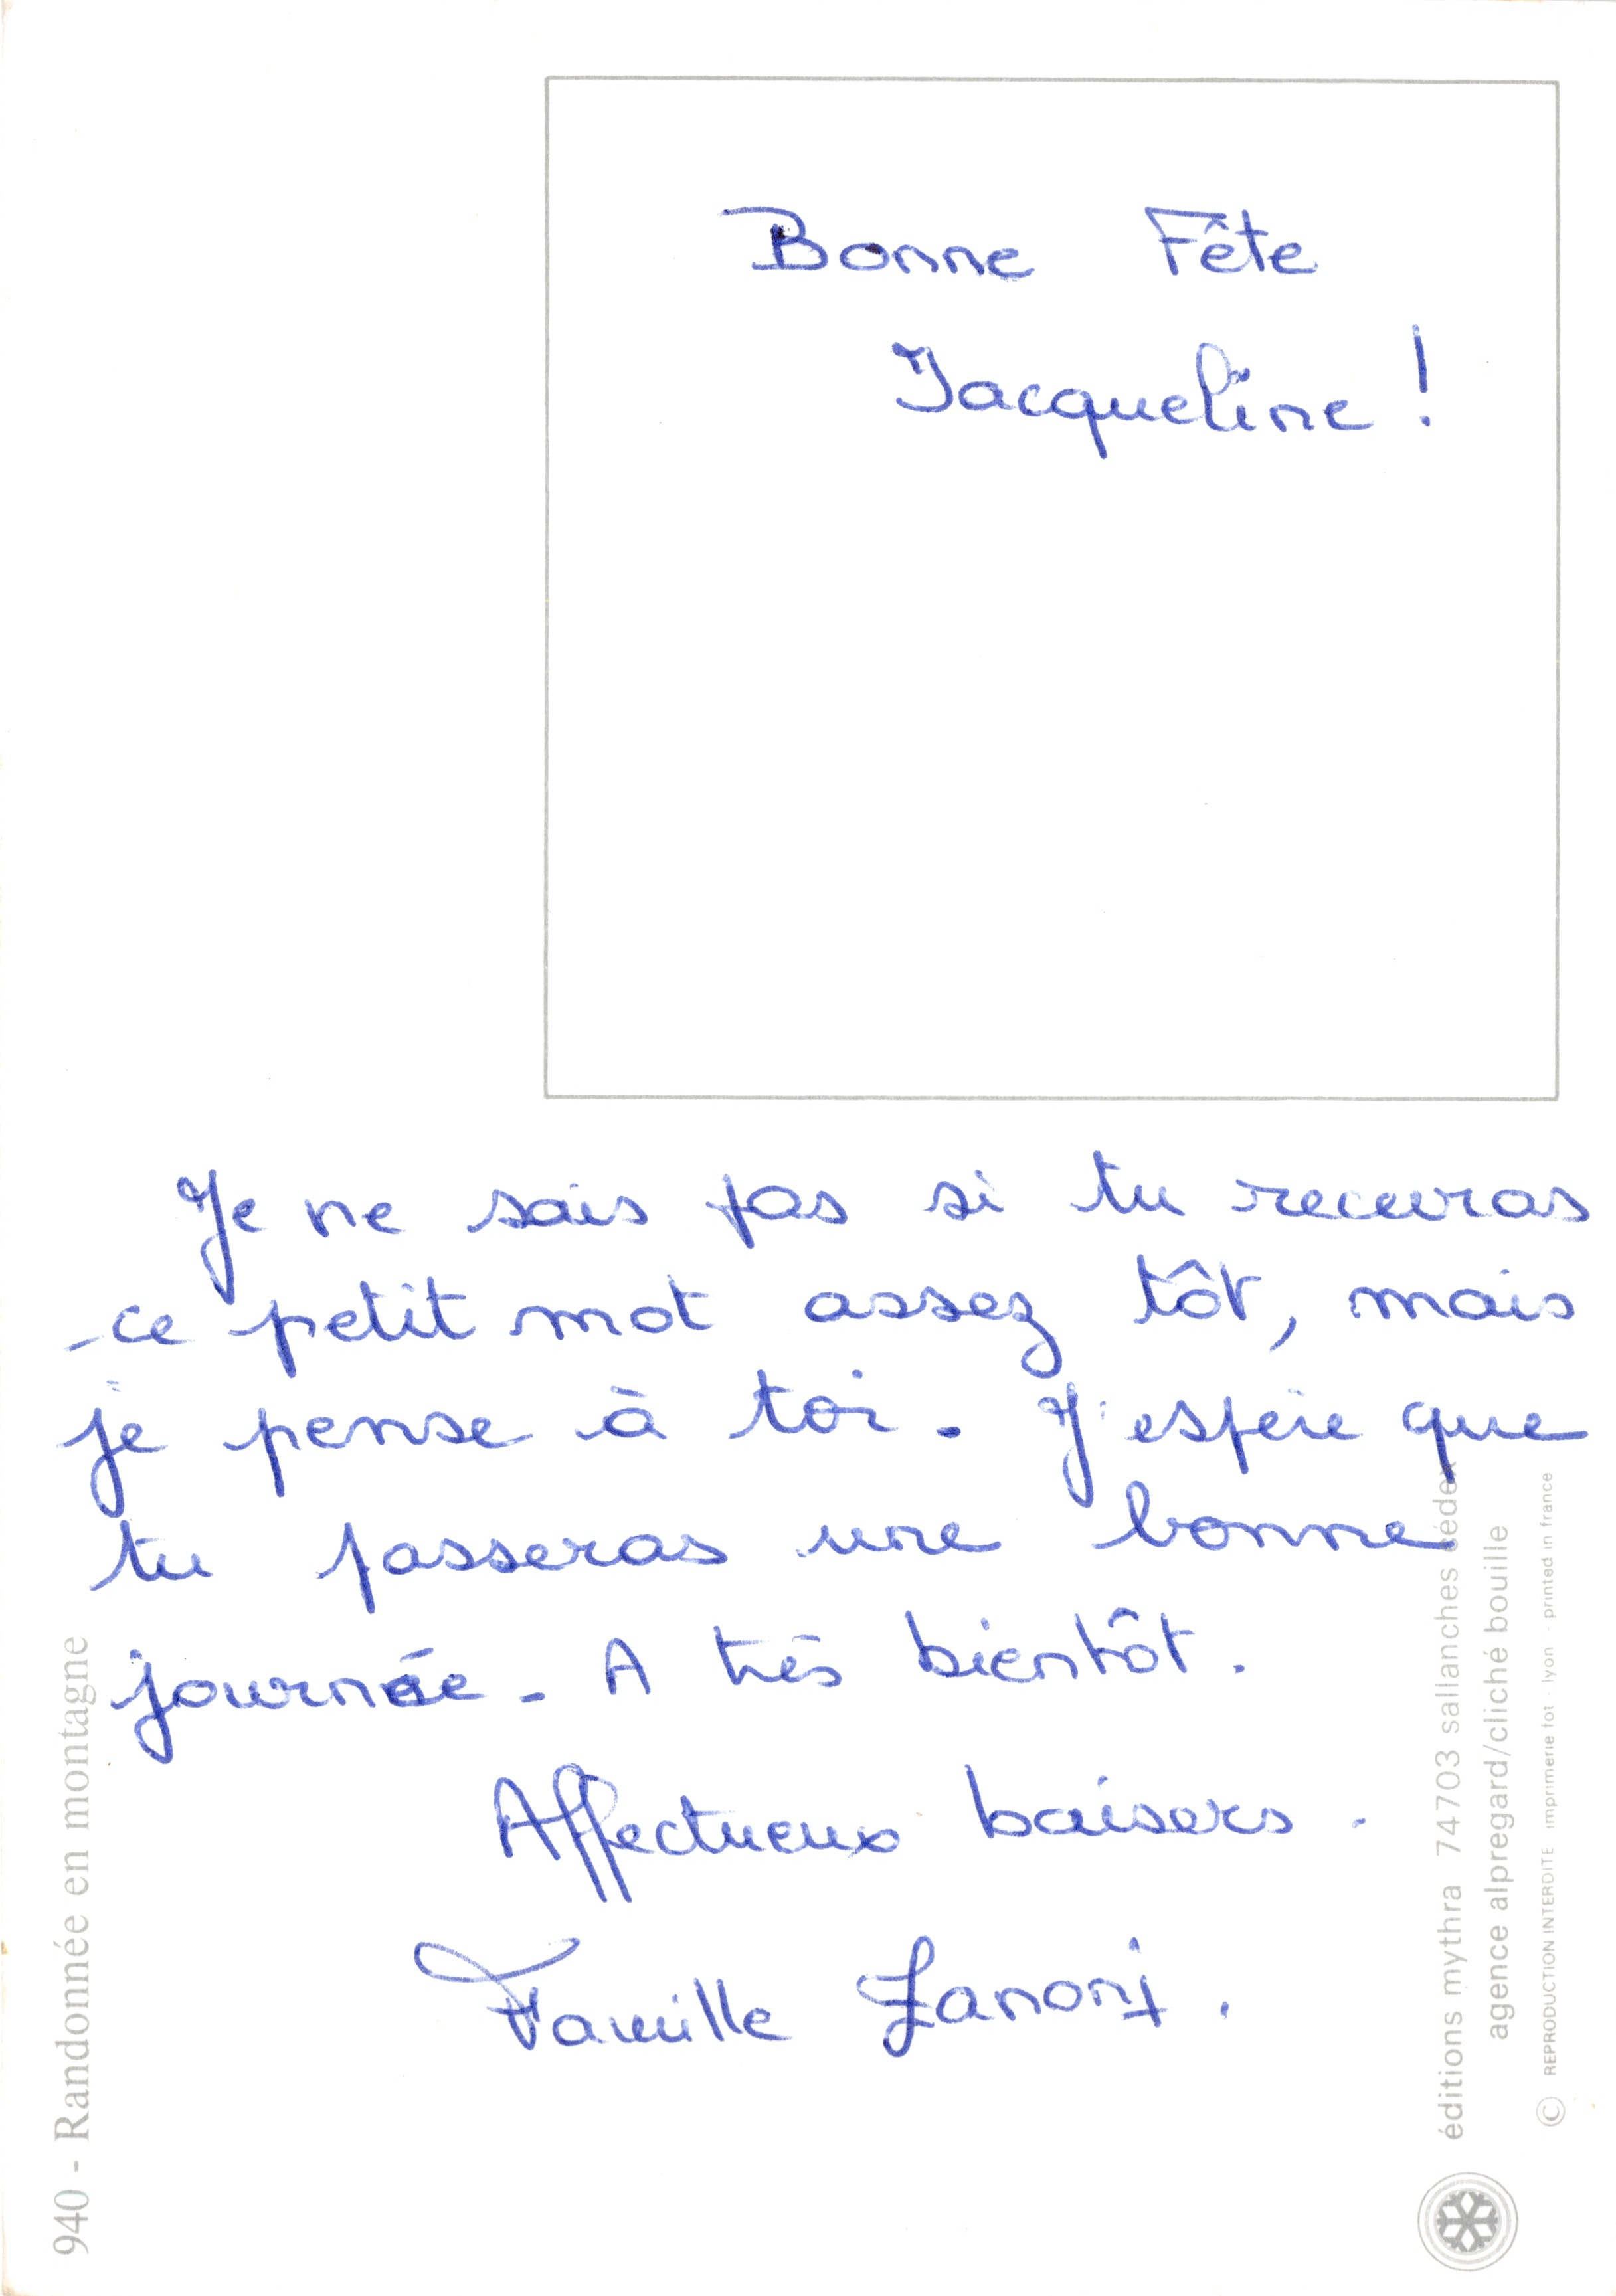 Bonne Fête
Jacqueline !
Je ne sais pas si tu recevras
ce petit mot assez tôt, mais
je pense à toi. J'espère que
tu passeras une bonne
journée. A très bientôt.
Affectueux baisers.
Famille Zanoni.
940 - Randonnée en montagne
éditions mythra 74703 sallanches cédex
agence alpregard/cliché bouille
© REPRODUCTION INTERDITE imprimerie fot . lyon . printed in france